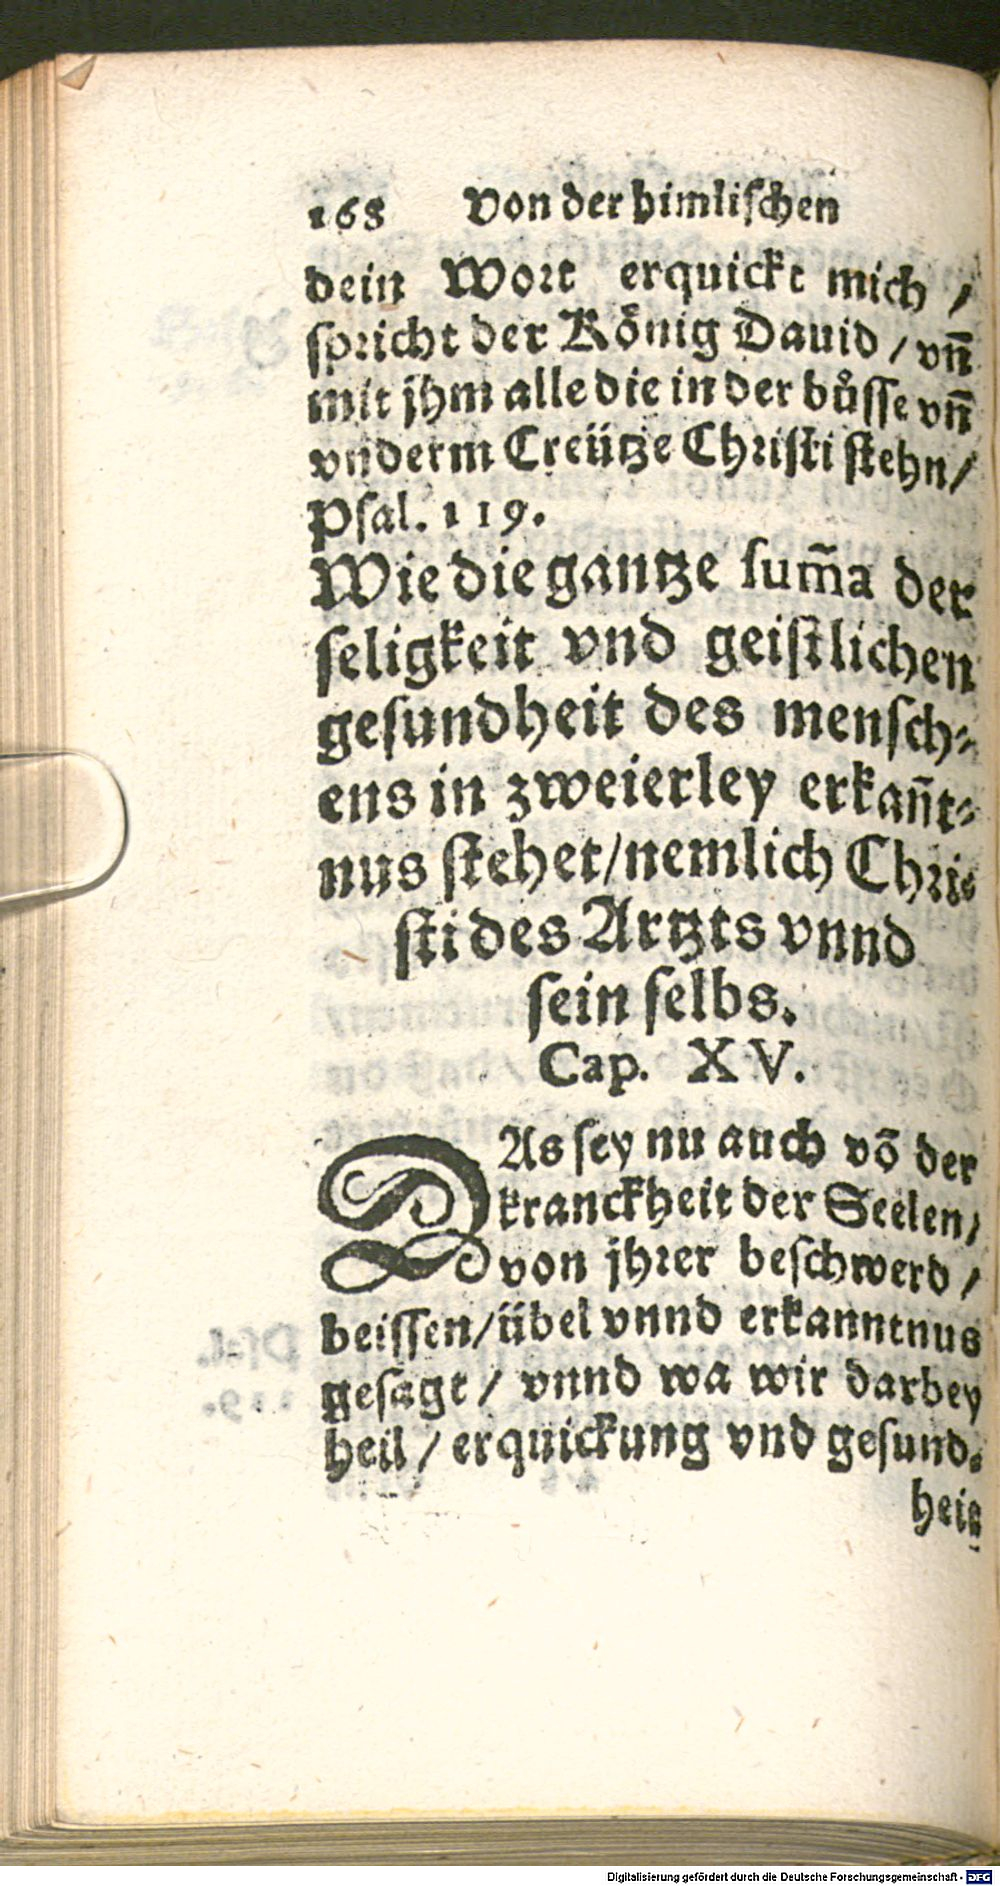 168 Von der himlischen
dein Wort erquickt mich /
spricht der König Dauid / vn̄
mit jhm alle die in der bůsse vn̄
vnderm Creütze Christi stehn /
Psal. 119.
Wie die gantze sum̄a der
seligkeit vnd geistlichen
gesundheit des mensch-
ens in zweierley erkan̄t-
nus stehet / nemlich Chri-
sti des Artzts vnnd
sein selbs.
Cap. XV.
DAs sey nu auch vō der
kranckheit der Seelen /
von jhrer beschwerd /
beissen / übel vnnd erkanntnus
gesagt / vnnd wa wir darbey
heil / erquickung vnd gesund-
heit
Digitalisierung gefördert durch die Deutsche Forschungsgemeinschaft - DFG